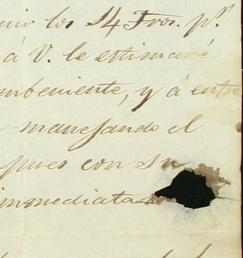 los 14 Fros. pr.
á V. le estimaré
mbeniente, y á entre
manejando el
pues con su
inmediata